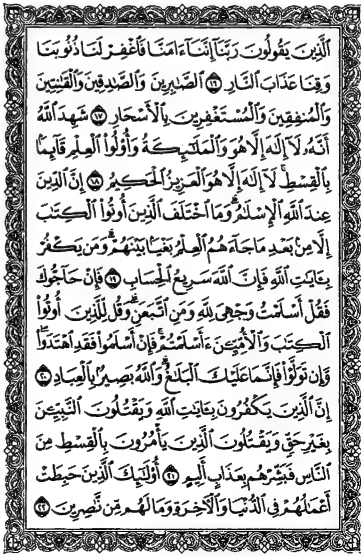 الَّذِينَ يَقُولُونَ رَبَّنَا إِنَّنَا ءَامَنَّا فَاغْفِرْ لَنَا ذُنُوبَنَا
وَقِنَا عَذَابَ النَّارِ ١٦ الصَّٰبِرِينَ وَالصَّٰدِقِينَ وَالْقَٰنِتِينَ
وَالْمُنفِقِينَ وَالْمُسْتَغْفِرِينَ بِالْأَسْحَارِ ١٧ شَهِدَ اللَّهُ
أَنَّهُ لَا إِلَٰهَ إِلَّا هُوَ وَالْمَلَٰٓئِكَةُ وَأُو۟لُوا۟ الْعِلْمِ قَآئِمًا
بِالْقِسْطِ ۚ لَآ إِلَٰهَ إِلَّا هُوَ الْعَزِيزُ الْحَكِيمُ ١٨ إِنَّ الدِّينَ
عِندَ اللَّهِ الْإِسْلَٰمُ ۗ وَمَا اخْتَلَفَ الَّذِينَ أُوتُوا۟ الْكِتَٰبَ
إِلَّا مِنۢ بَعْدِ مَا جَآءَهُمُ الْعِلْمُ بَغْيًۢا بَيْنَهُمْ ۗ وَمَن يَكْفُرْ
بِـَٔايَٰتِ اللَّهِ فَإِنَّ اللَّهَ سَرِيعُ الْحِسَابِ ١٩ فَإِنْ حَآجُّوكَ
فَقُلْ أَسْلَمْتُ وَجْهِيَ لِلَّهِ وَمَنِ اتَّبَعَنِ ۗ وَقُل لِّلَّذِينَ أُوتُوا۟
الْكِتَٰبَ وَالْأُمِّيِّـۧنَ ءَأَسْلَمْتُمْ ۚ فَإِنْ أَسْلَمُوا۟ فَقَدِ اهْتَدَوا۟ ۖ
وَّإِن تَوَلَّوْا۟ فَإِنَّمَا عَلَيْكَ الْبَلَٰغُ ۗ وَاللَّهُ بَصِيرٌۢ بِالْعِبَادِ ٢٠
إِنَّ الَّذِينَ يَكْفُرُونَ بِـَٔايَٰتِ اللَّهِ وَيَقْتُلُونَ النَّبِيِّـۧنَ
بِغَيْرِ حَقٍّ وَيَقْتُلُونَ الَّذِينَ يَأْمُرُونَ بِالْقِسْطِ مِنَ
النَّاسِ فَبَشِّرْهُم بِعَذَابٍ أَلِيمٍ ٢١ أُو۟لَٰٓئِكَ الَّذِينَ حَبِطَتْ
أَعْمَٰلُهُمْ فِي الدُّنْيَا وَالْآخِرَةِ وَمَا لَهُم مِّن نَّٰصِرِينَ ٢٢